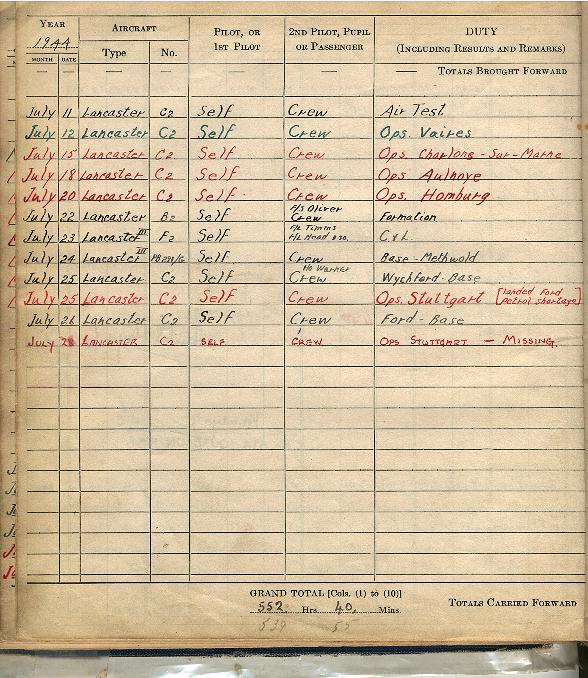 YEAR AIRCRAFT PILOT, OR 1ST PILOT 2ND PILOT, PUPIL OR PASSENGER DUTY (INCLUDING RESULTS AND REMARKS)
1944
MONTH DATE Type No.
— — — — — — TOTALS BROUGHT FORWARD
July 11 Lancaster C2 Self Crew Air Test
July 12 Lancaster C2 Self Crew Ops. Vaires
July 15 Lancaster C2 Self Crew Ops. Charlons-Sur-Marne
July 18 Lancaster C2 Self Crew Ops Aulnoye
July 20 Lancaster C2 Self Crew Ops. Homburg
July 22 Lancaster B2 Self F/S Oliver Crew Formation
July 23 Lancaster III F2 Self F/L Timms F/L Head
July 24 Lancaster III Self Crew Base-Methwold
July 25 Lancaster C2 Self Crew Wychford-Base
July 25 Lancaster C2 Self Crew Ops. Stuttgart [Landed Ford petrol shortage]
July 26 Lancaster C2 Self Crew Ford-Base
JULY 28 LANCASTER C2 SELF CREW OPS STUTTGART — MISSING.
GRAND TOTAL [Cols. (1) to (10)]
552 Hrs. 40 Mins. TOTALS CARRIED FORWARD